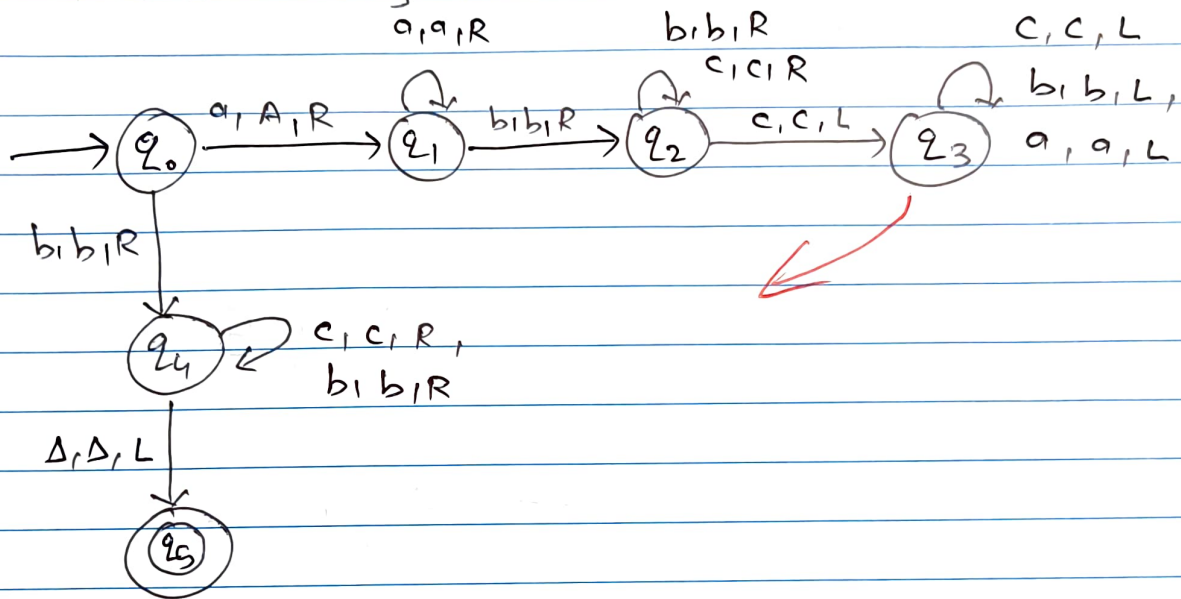 a, a, R
b, b, R
c, c, R
C, C, L
b, b, L,
a, a, L
q0
a, A, R
q1
b, b, R
q2
c, C, L
q3
b, b, R
q4
c, c, R,
b, b, R
Δ, Δ, L
q5